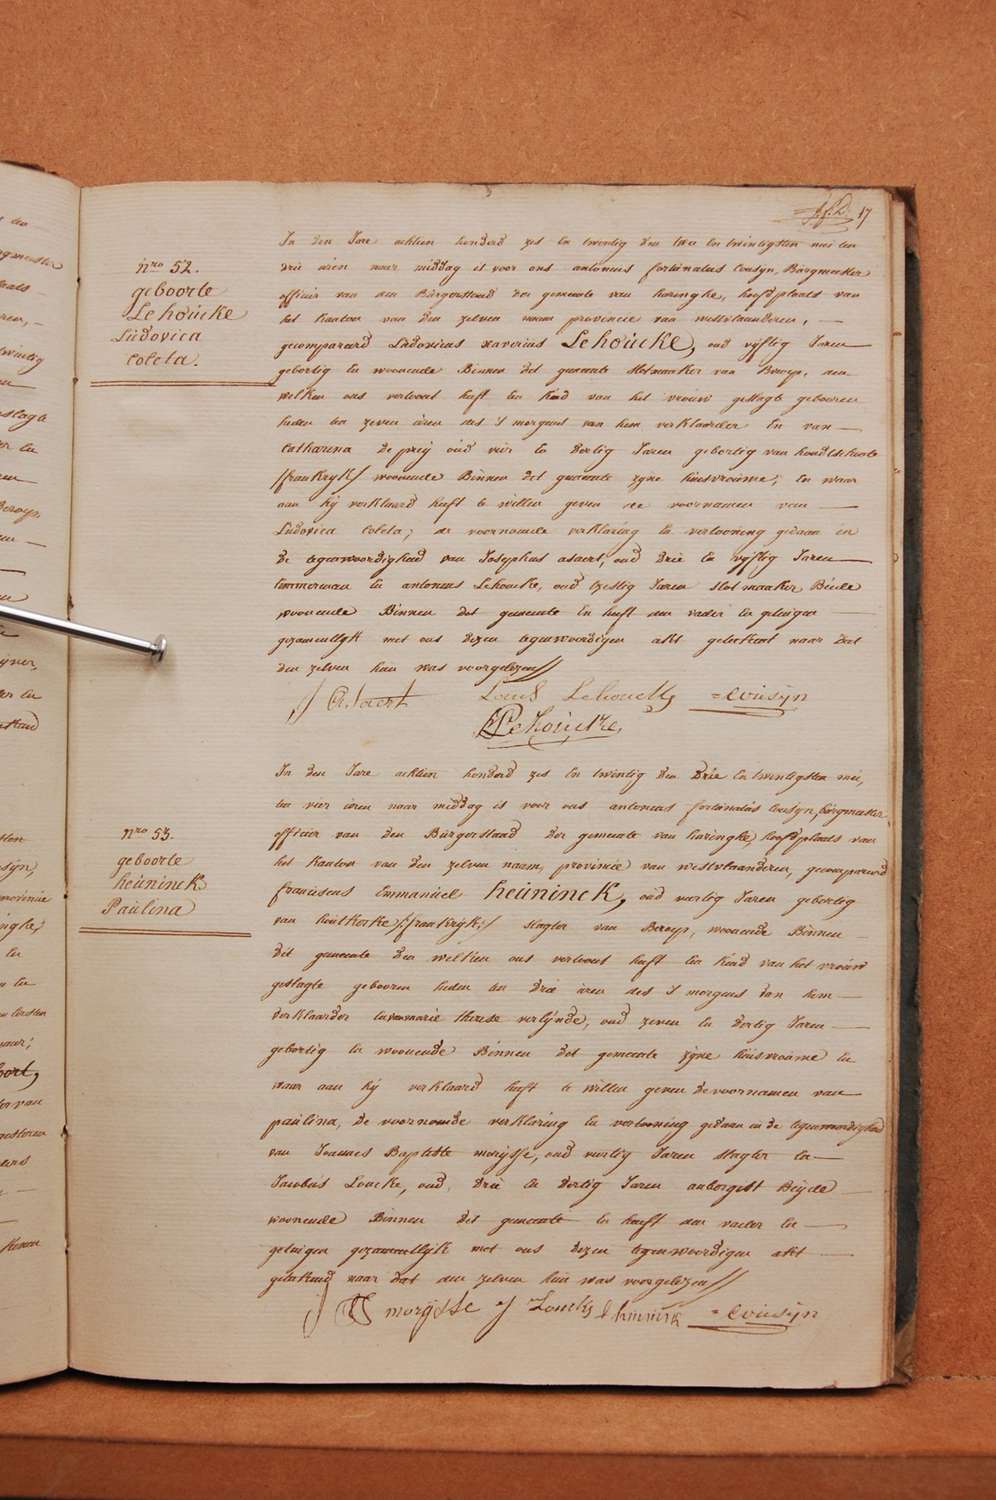 17
In den Jare achtien honderd zes en twintig den twee en twintigsten mei ten
drie uren naar middag is voor ons antonius fortunatus Cousyn, Burgmeester
officier van den Burgerstaad der gemeente van haringhe, hoofdplaats van
het kanton van den zelven naam provincie van westvlaanderen,
gecompareerd Ludovicus xaverius Lehoucke, oud vyftig Jaren
gebortig en woonende Binnen det gemeente slotmaaker van Beroep, den
welken ons vertoont heeft een kind van het vrouw geslagte gebooren
heden ten zeven uren des s' morgens van hem verklaarder en van
Catharina De prey oud vier en Dertig Jaren gebortig van hondtschoote
/frankryk/ woonende Binnen det gemeente zyne huisvrouwe; en waar
aan hij verklaard heeft te willen geven de voornamen van
Ludovica Coleta; de voornoemde verklaring en vertooning gedaan in
de tegenwoordigheid van Josephus asaert, oud drie en vyftig Jaren
timmerman en antonius Lehoucke, oud tzestig Jaren slotmaaker Beide
woonende Binnen det gemeente en heeft den vader en getuigen
gezamentlyk met ons dezen tegenwoordigen akt geteekent naar dat
den zelven hun was voorgelezen //
nro 52.
geboorte
Lehoucke
Ludovica
Coleta.
J Asaert Louis Lehoucke =Cousyn
Lehoucke,
In den Jare achtien honderd zes en twintig den Drie en twintigsten mei,
ten vier uren naar middag is voor ons antonius fortunatus Cousyn, burgmeester
officier van den Burgerstaad der gemeente van haringhe, hoofdplaats van
het kanton van den zelven naam, provincie van westvlaanderen, gecompareerd
franciscus Emmanuel heuninck, oud veertig Jaren gebortig
van houtkerke /:frankryk:/ slagter van Beroep, woonende Binnen
det gemeente den welken ons vertoont heeft een kind van het vrouw
geslagte gebooren heden ten drie uren des s' morgens van hem
verklaarder en van marie therese verlynde, oud zeven en dertig Jaren
gebortig en woonende Binnen det gemeente zyne huisvrouwe en
waar aan hij verklaard heeft te willen geven de voornamen van
paulina, De voornoemde verklaring en vertooning gedaan in de tegenwoordigheid
van Joannes Baptiste morysse, oud veertig Jaren slagter en
Jacobus Loucke, oud drie en dertig Jaren Beyde
woonende Binnen det gemeente en heeft den vader en
getuigen gezamentlyk met ons dezen tegenwoordigen akt
geteekend naar dat den zelven hun was voorgelezen //
nro 53.
geboorte
heuninck
Paulina
morysse J Loucke heuninck =Cousyn